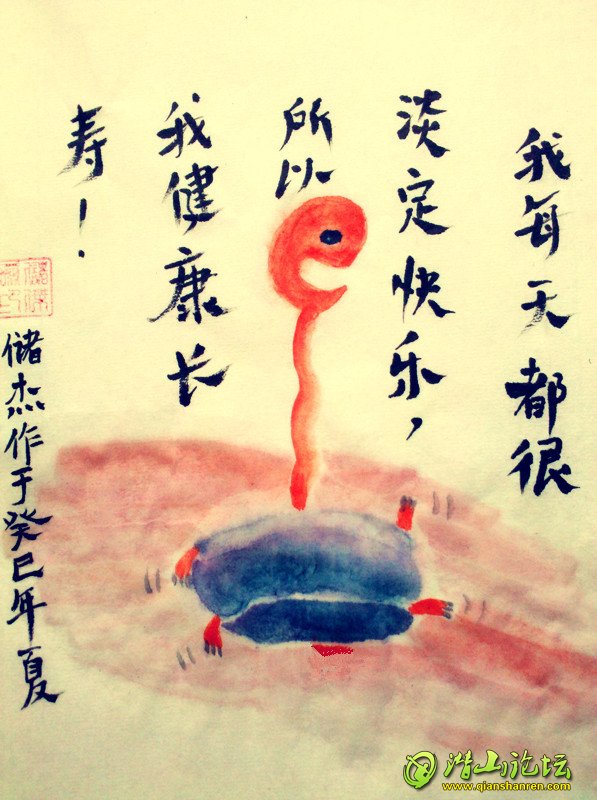 我每天都很
淡定快乐，
所以
我健康长
寿！
储杰作于癸巳年夏
潜山论坛
www.qianshanren.com